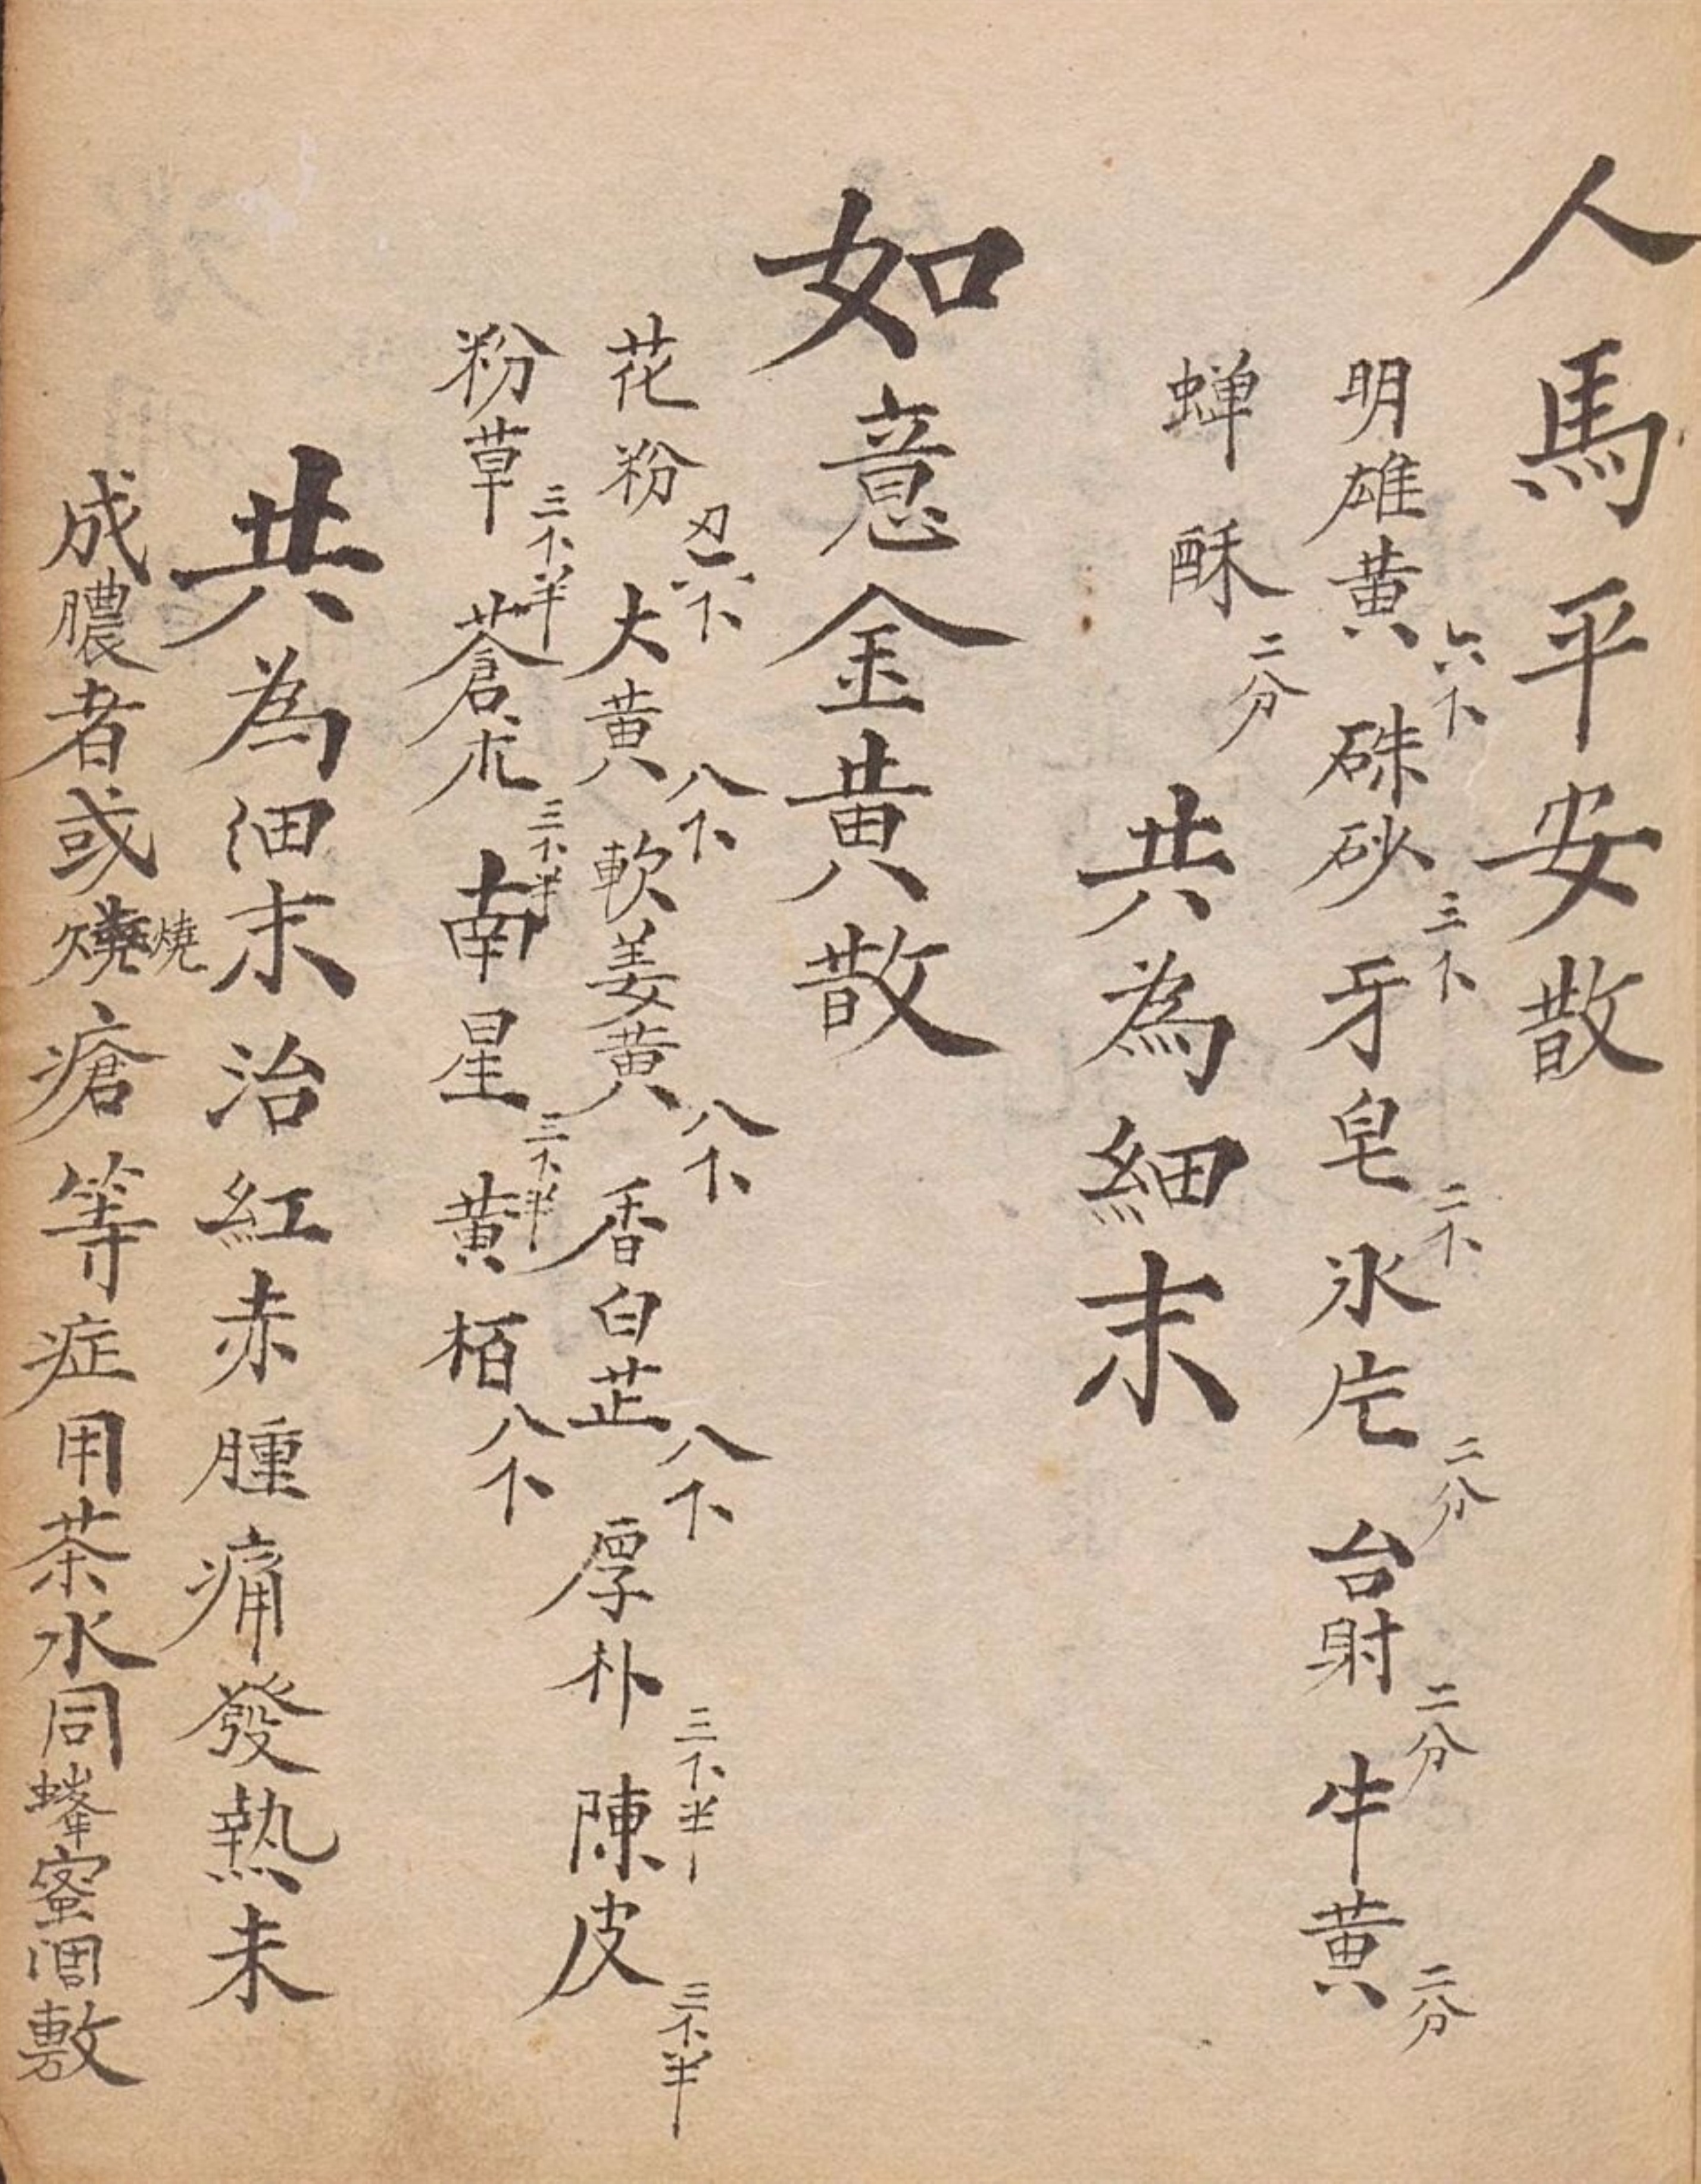 人馬平安散
明雄黃六个硃砂三个牙皂二个氷片二分台射二分牛黃二分
蝉酥二分
共為細末
如意金黄散
花粉刄一六个大黄八个軟姜黄八个香白芷八个厚朴三个半陳皮三个半
粉草三个半蒼朮三个半南星三个半黄栢八个
共為细末治紅赤腫痛發熱未
成膿者或燒燒瘡等症用茶水同蜂蜜调敷